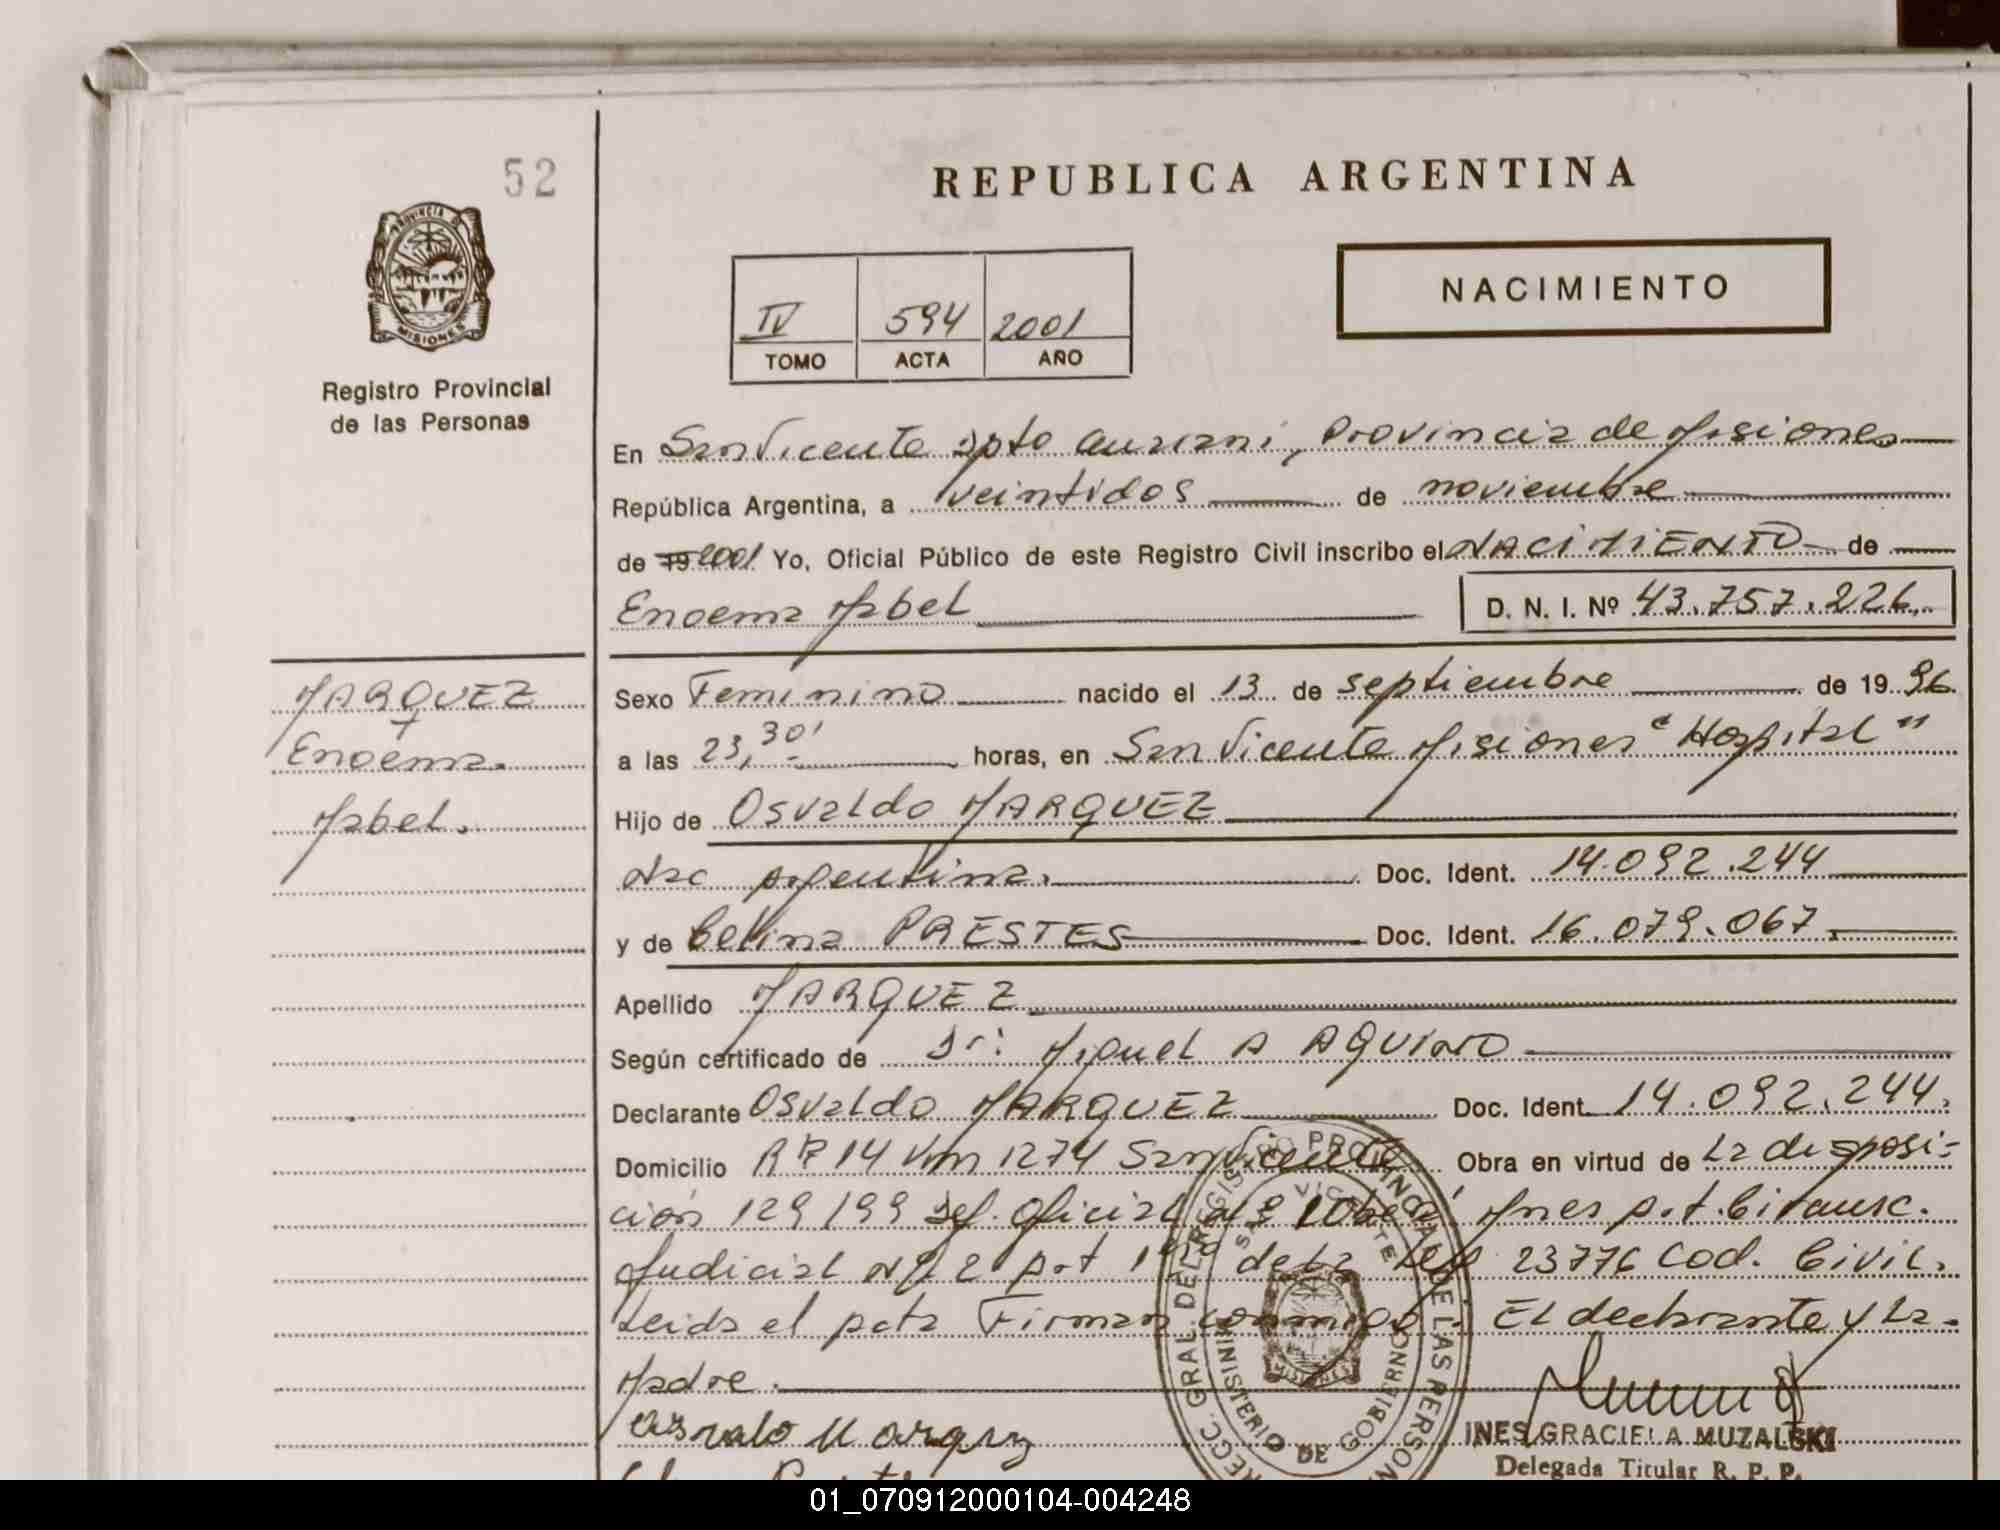 52
PROVINCIA DE
MISIONES
Registro Provincial
de las Personas
REPUBLICA ARGENTINA
IV 594 2001
TOMO ACTA AÑO
NACIMIENTO
En San Vicente Dpto Guarani, Provincia de Misiones
República Argentina, a veintidos de noviembre
de 19 2001 Yo, Oficial Público de este Registro Civil inscribo el NACIMIENTO de
Enoema Mabel D. N. I. Nº 43.757.226.
MARQUEZ
Enoema.
Mabel.
Sexo Femenino nacido el 13 de septiembre de 19 96.
a las 23,30' horas, en San Vicente Misiones "Hospital"
Hijo de Osvaldo MARQUEZ
Nac Argentina. Doc. Ident. 14.092.244
y de Celina PRESTES Doc. Ident. 16.079.067.
Apellido MARQUEZ
Según certificado de Dr: Miguel A AQUINO
Declarante Osvaldo MARQUEZ Doc. Ident. 14.092.244.
Domicilio R P 14 Km 1274 San Vicente Obra en virtud de La disposi-
ción 129/99 Def. Oficial Nº 1 Oberá, Mnes p.t. Circunsc.
Judicial Nº 2 Art 1º de La Ley 23776 Cod. Civil.
Leida el Acta Firman conmigo: El declarante y La
Madre.
Osvaldo Marquez
REGISTRO PROVINCIAL DE LAS PERSONAS
SAN VICENTE
MINISTERIO DE GOBIERNO
MISIONES
INES GRACIELA MUZALSKI
Delegada Titular R. P. P.
01_070912000104-004248